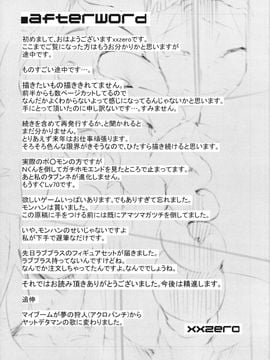 ■afterword
初めまして、おはようございますxxzeroです。
ここまでご覧になった方はもうお分かりかと思いますが
途中です。
ものすごい途中です…。
描きたいもの描ききれてません。
前半からも数ページカットしてるので
なんだかよくわからないよって感じになってるんじゃないかと思います。
手にとって頂いたのに申し訳ないです…。すみません。
続きを含めて再発行するか、と聞かれると
まだ分かりません。
とりあえず来年はお仕事頑張ります。
そろそろ色んな限界がきそうなので、ひたすら描き続けると思います。
実際のポ○モンの方ですが
Nくんを倒してガチホモエンドを見たところで止まってます。
あと私のタブンネが進化しません。
もうすぐLv70です。
欲しいゲームいっぱいあります。でもありすぎて忘れました。
モンハンは買いました。
この原稿に手をつける前には既にアマツマガツチを倒してました。
いや、モンハンのせいじゃないですよ
私が下手で遅筆なだけです。
先日ラブプラスのフィギュアセットが届きました。
ラブプラス持ってないんですけど。
なんでか注文しちゃってたんですよ。なんででしょうね。
それではお読み頂きありがとうございました。今後は精進します。
追伸
マイブームが夢の狩人(アクロバンチ)から
ヤットデタマンの歌に変わりました。
xxzero